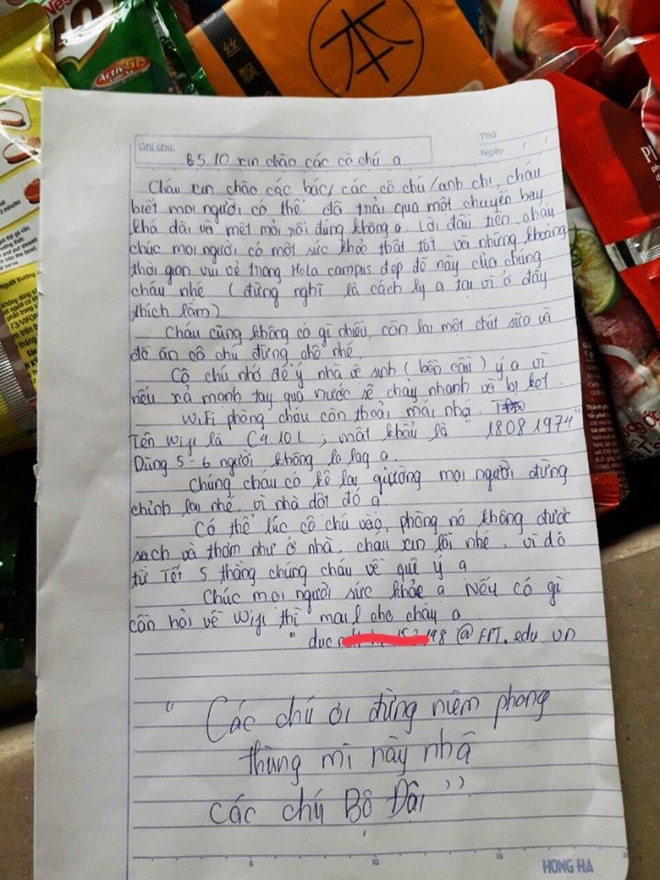 Nes
44
飘
本
Ghi chú:
Thứ
Ngày / /
B5.10 xin chào các cô chú ạ
Cháu xin chào các bác/ các cô chú/anh chị, cháu
biết mọi người có thể đã trải qua một chuyến bay
khá dài và mệt mỏi rồi đúng không ạ. Lời đầu tiên, cháu
chúc mọi người có một sức khỏe thật tốt và những khoảng
thời gian vui vẻ trong Hola campus đẹp đẽ này của chúng
cháu nhé (đừng nghĩ là cách ly ạ tại vì ở đây
thích lắm)
Cháu cũng không có gì nhiều, còn lại một chút sữa và
đồ ăn cô chú đừng chê nhé.
Cô chú nhớ để ý nhà vệ sinh (bồn cầu) ý ạ vì
nếu xả mạnh tay quá nước sẽ chảy nhanh và bị kẹt.
Wifi phòng cháu còn thoải mái nhá.
Tên Wifi là C410L, mật khẩu là 18081974"
Dùng 5-6 người không lo lag ạ.
Chúng cháu có kê lại giường mọi người đừng
chỉnh lại nhé, vì nhà dột đó ạ.
Có thể lúc cô chú vào, phòng nó không được
sạch và thơm như ở nhà, cháu xin lỗi nhé, vì đó
từ Tết 5 tháng chúng cháu về quê ý ạ
Chúc mọi người sức khỏe ạ Nếu có gì
cần hỏi về Wifi thì mail cho cháu ạ
"duc 198@FPT.edu.vn
“Các chú ơi đừng niêm phong
thùng mì này nhá
các chú Bộ Đội”
5 10
HONG HA